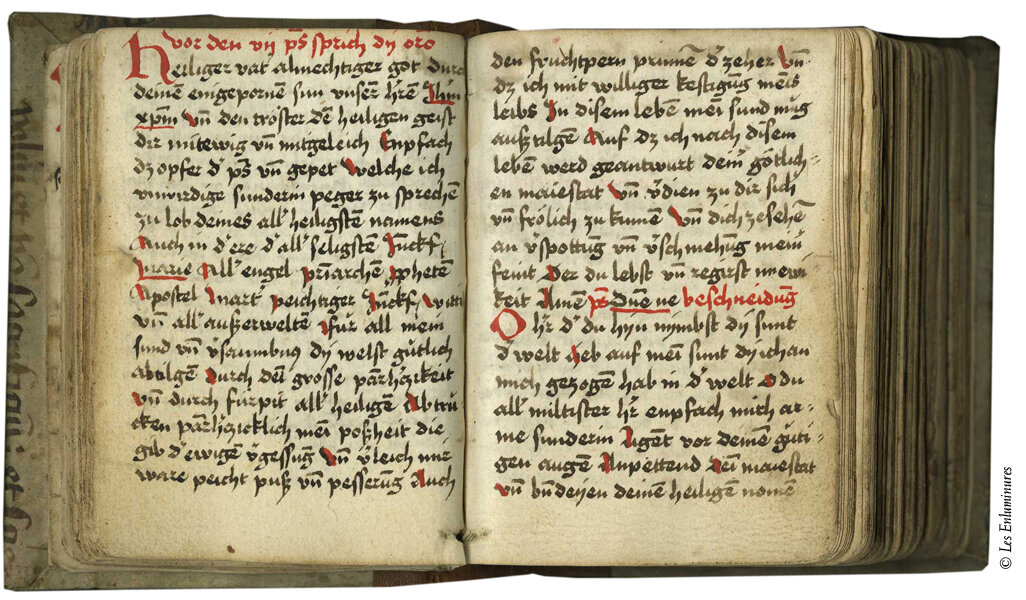 vor den vij ps̄ sprich dij oro
Heiliger vat almechtiger got durch
deinē eingepornē sun vnserz hr̄en Jhm
xp̄m vn̄ den tröster dē heiligen geist
dir mitewig vn̄ mitgeleich Enpfach
dz opfer d' ps̄ vn̄ gepet Welche ich
vnwirdige sunderin peger zu sprechen
zu lob deines all' heiligstē namens
Auch in d' ere d' all' seligstē Junckf
marie All' engel priarchē pphetē
Apostel Mart' peichtiger Junckf Witti
vn̄ all' außerweltē für all mein
sund vn̄ v'saumbnuß dij welst gūtlich
abtilgē Durch dēi grosse pārhzikeit
Vn̄ durch fürpit all' heiligē Abtru
cken pārhczicklich mei poßheit die
gib d' ewigē v'gessūg Vn̄ v'leich mir
ware peicht puß vn̄ pesserūg Auch
den fruchtpern prunnē d' zeher Vn̄
dz ich mit williger kestigūg meis
leibs In disem lebē mei sund mug
außtilgē Auf dz ich nach disem
lebē werd geantwurt deinr götlich=
en maiestat Vn̄ v'dien zu dir sich'
vn̄ frölich zu kumē Vn̄ dich zesehē
an v'spottūg vn̄ v'schmehūg meinr
feint Der du lebst vn̄ regirst in ewi
keit Amē ps̄ Dnē ne beschneidūg
O hr̄ d' du hyn nymbst dij sunt
d' welt Heb auf mei sunt dij ich an
mich gezogen hab in d' welt O du
all' miltister hr̄ enpfach mich ar=
me sunderin Ligēt vor deinen gūti=
gen augē Anpettend dēi maiestat
Vn̄ deinē heiligen nomē
© Les Enluminures